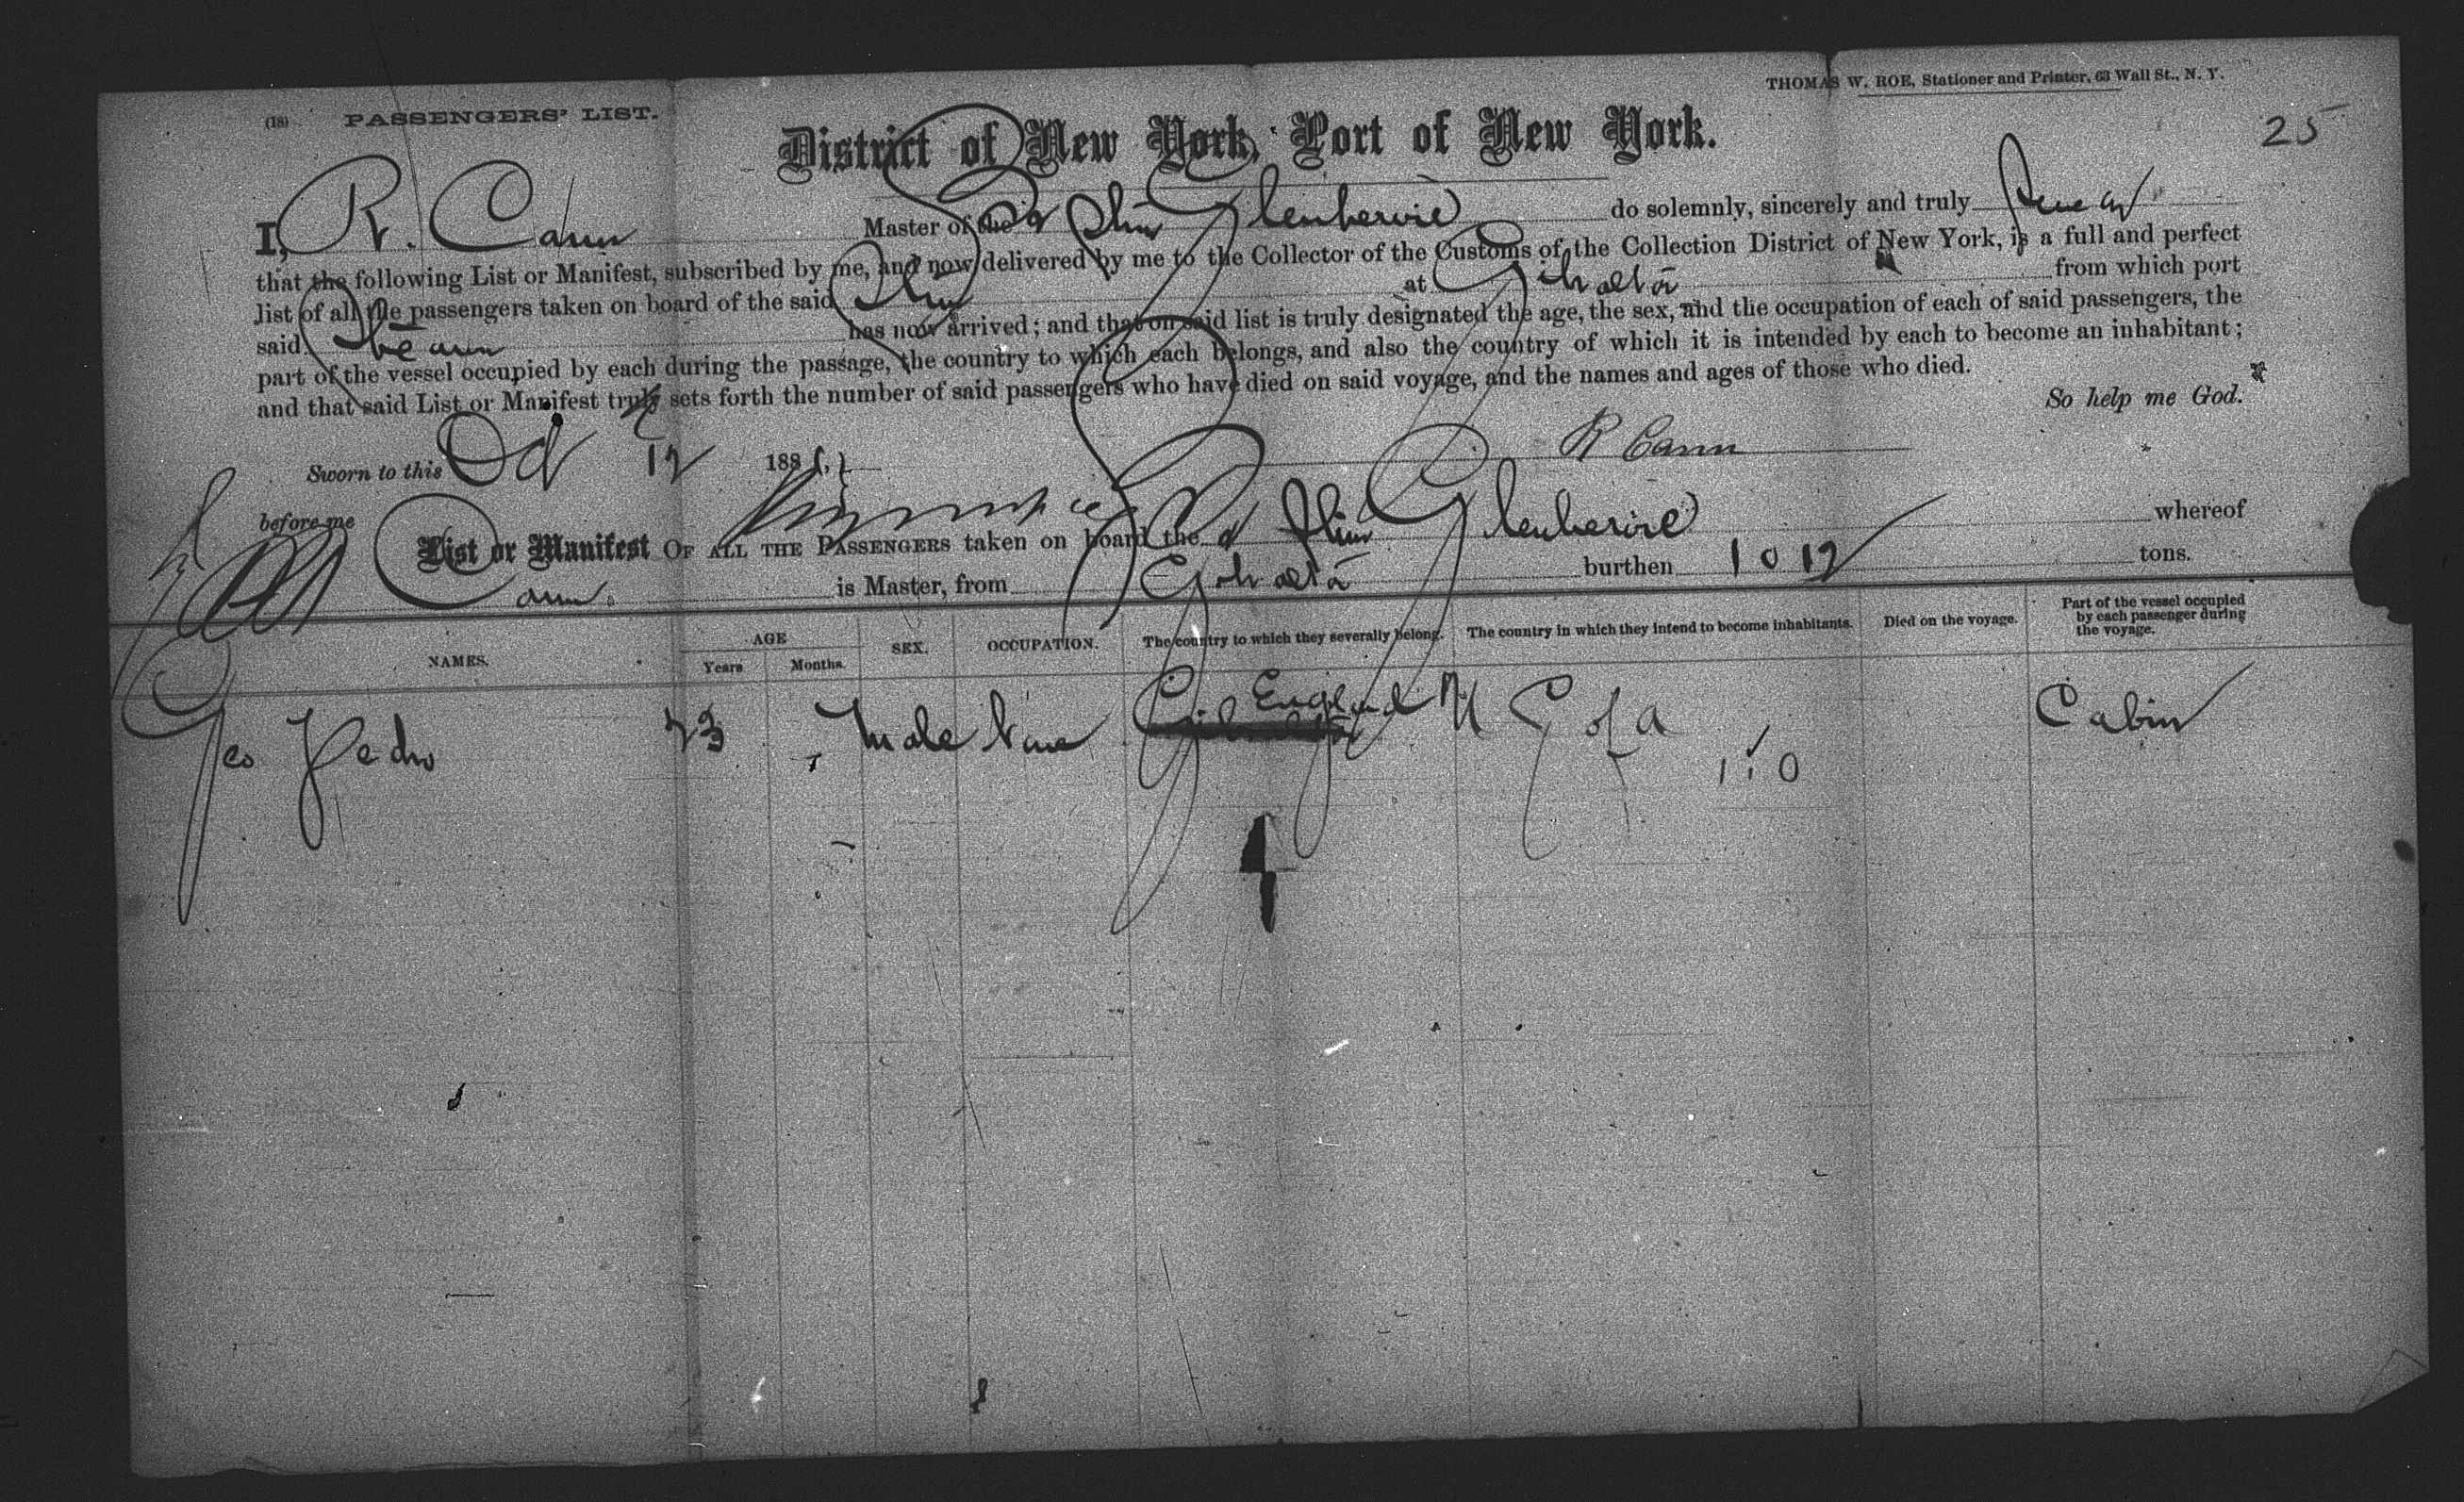 THOMAS W. ROE, Stationer and Printer, 63 Wall St., N. Y.
(18) PASSENGERS' LIST.
25
District of New York, Port of New York.
I, R. Cann Master of the Glenbervie do solemnly, sincerely and truly Swear
that the following List or Manifest, subscribed by me, and now delivered by me to the Collector of the Customs of the Collection District of New York, is a full and perfect
list of all the passengers taken on board of the said at from which port
said has now arrived; and that on said list is truly designated the age, the sex, and the occupation of each of said passengers, the
part of the vessel occupied by each during the passage, the country to which each belongs, and also the country of which it is intended by each to become an inhabitant;
and that said List or Manifest truly sets forth the number of said passengers who have died on said voyage, and the names and ages of those who died.
So help me God.
Sworn to this Oct 12 188
R Cann
before me
List or Manifest OF ALL THE PASSENGERS taken on board the Glenbervie whereof
Cann is Master, from burthen 1012 tons.
NAMES. AGE Years Months. SEX. OCCUPATION. The country to which they severally belong. The country in which they intend to become inhabitants. Died on the voyage. Part of the vessel occupied by each passenger during the voyage.
Geo Pedro 23 Male None England U S of A Cabin